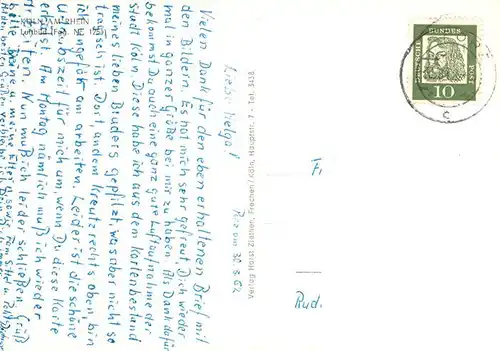 KÖLN AM RHEIN
Luftbild (Freig. Nr.
Liebe Helga!
Köln am 30.8.62
Vielen Dank für den eben erhaltenen Brief mit
den Bildern. Es hat mich sehr gefreut, Dich wieder
mal in ganzer Größe bei mir zu haben. Als Dank dafür
bekommst Du auch eine ganz gute Luftaufnahme der
Stadt Köln. Diese habe ich aus dem Kartenbestand
meines lieben Bruders gepfilzt, was aber nicht so
tragisch ist. Dort an dem Kreuz rechts oben bin
ich ungefähr am arbeiten. Leider ist die schöne
Urlaubszeit für mich um, wenn Du diese Karte
erhälst. Am Montag nämlich muß ich wieder
arbeiten. Nun muß ich leider schließen. Grüß
bitte Deine u. meine Eltern, sowie
Verlag Horst Ziethen, Frechen/Köln, Hauptstr. 7 - Tel. 3438
DEUTSCHE BUNDESPOST
10
C
Fr
Rud.